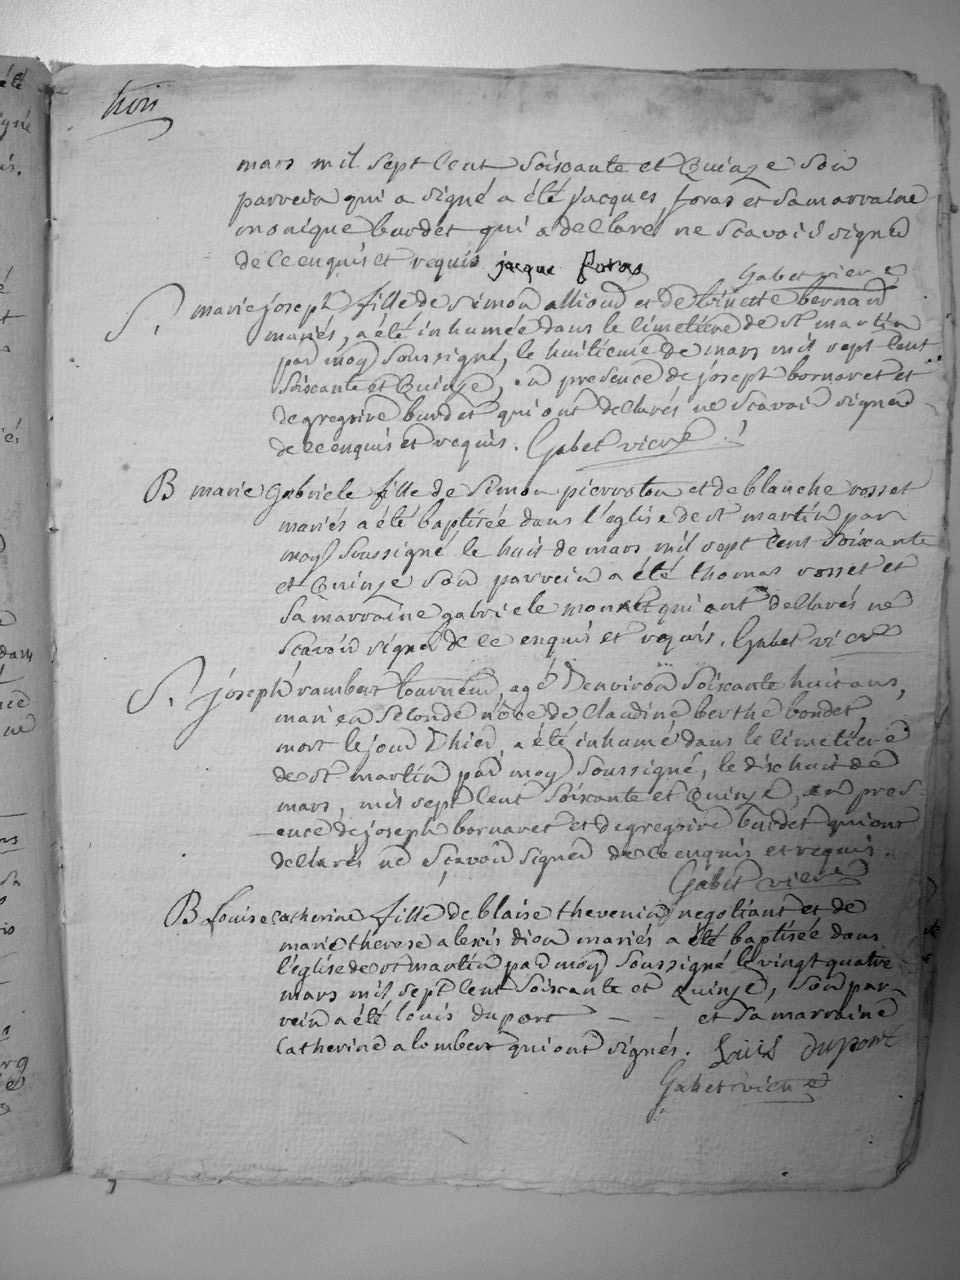 trois
mars mil sept cent soixante et quinze son
parrein qui a signé a été jacques foras et sa marraine
monique burdet qui a declaré ne scavoir signer
de ce enquis et requis jacque foras
Gabet vicre
S. marie joseph fille de simon allioud et de binette bernard
mariés, a été inhumée dans le cimetiere de st martin
par moy soussigné, le huitieme de mars mil sept cent
soixante et quinze, en presence de joseph bornaret et
de gregoire burdet qui ont declarés ne scavoir signer
de ce enquis et requis. Gabet vicre
B marie Gabriele fille de simon pierroton et de blanche rosset
mariés a été baptisée dans l'eglise de st martin par
moy soussigné le huit de mars mil sept cent soixante
et quinze son parrein a été thomas rosset et
sa marraine gabriele qui ont declarés ne
scavoir signer de ce enquis et requis. Gabet vicre
S. joseph rambert tourneur, agé d'environ soixante huit ans,
marié en seconde nôce de claudine berthe bondet,
mort le jour d'hier, a été inhumé dans le cimetiere
de st martin par moy soussigné, le dix huit de
mars, mil sept cent soixante et quinze, en pres-
ence de joseph bornaret et de gregoire burdet qui ont
declarés ne sçavoir signer de ce enquis et requis.
Gabet vicre
B Louise catherine fille de blaise thevenin negotiant et de
marie therese alexis dion mariés a été baptisée dans
l'eglise de st martin par moy soussigné le vingt quatre
mars mil sept cent soixante et quinze, son par-
rein a été louis duport - - et sa marraine
Catherine alombert qui ont signés. Louis duport
Gabet vicre